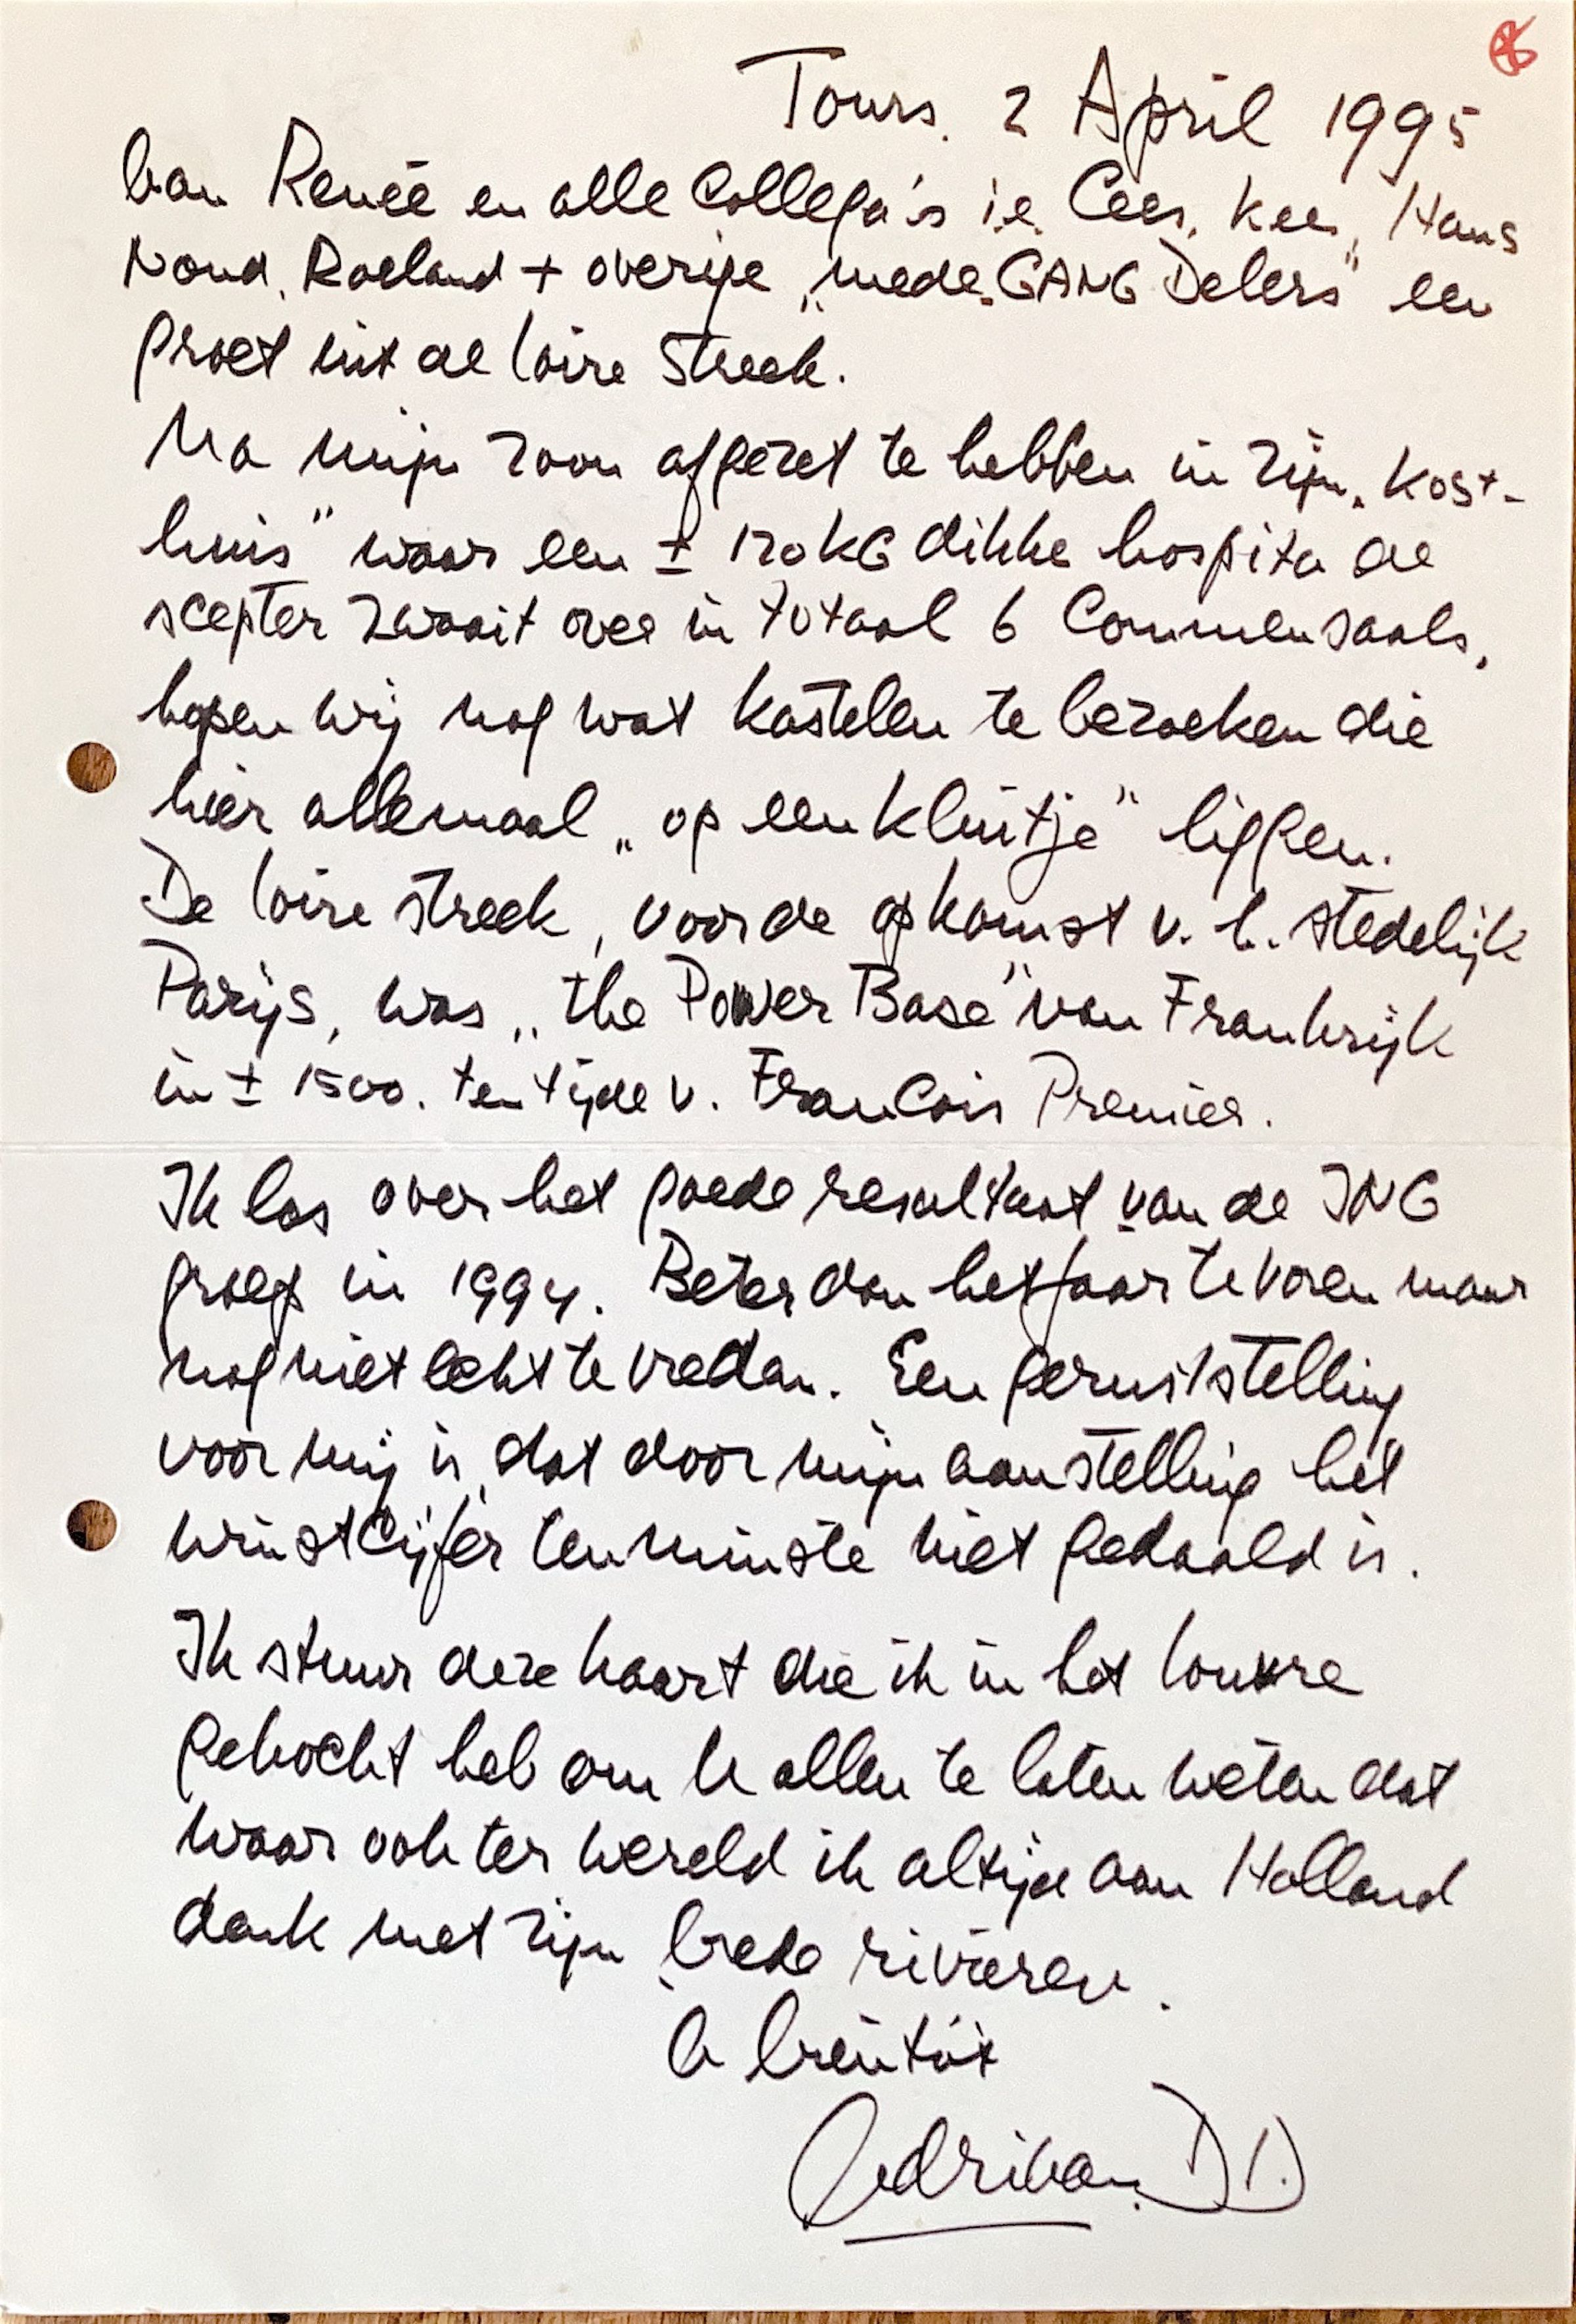 Tours. 2 April 1995
Aan Reneë en alle Collega's i.e. Cees, Kees, Hans
Noud, Roeland + overige „mede.GANG Delers" een
groet uit de loire Streek.
Na mijn zoon afgezet te hebben in zijn „Kost-
huis" waar een ± 120 KG dikke hospita de
scepter zwaait over in totaal 6 Commensaals,
hopen wij nog wat kastelen te bezoeken die
hier allemaal „op een kluitje" liggen.
De loire streek, voor de opkomst v. h. stedelijk
Parijs, was „the Power Base" van Frankrijk
in ± 1500. ten tijde v. Francois Premier.
Ik las over het goede resultaat van de ING
groep in 1994. Beter dan het jaar te voren maar
nog niet echt te vreden. Een geruststelling
voor mij is dat door mijn aanstelling het
winstcijfer tenminste niet gedaald is.
Ik stuur deze kaart die ik in het louvre
gekocht heb om U allen te laten weten dat
waar ook ter wereld ik altijd aan Holland
denk met zijn brede rivieren.
A bientôt
Adriaan. D.